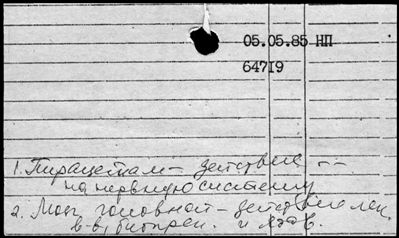 05.05.85 НП
64719
1. Пирацетам - действие --
на нервную систему
2. Мозг головной - действие лек.
в-в, биопреп. и